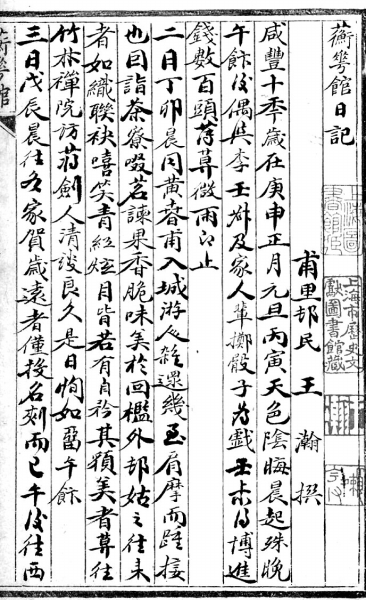 蘅華館日記
甫里邨民 王瀚 撰
咸豐十年歲在庚申正月元旦丙寅天色陰晦晨起殊晚
午飰後偶與李壬叔及家人輩擲骰子為戲壬叔得博進
錢數百頭薄暮微雨即止
二日丁卯晨同黃春甫入城游人雜遝幾至肩摩而踵接
也因詣茶寮啜茗諫果香脆味美於回檻外邨姑之往來
者如織聯袂嘻笑青紅炫目皆若有自矜其顏美者暮往
竹林禪院訪蔣劍人清談良久是日恂如留午飰
三日戊辰晨往各家賀歲遠者僅投名刺而已午後往西
蘅華館
上海圖書館藏
上海市歷史文獻圖書館藏